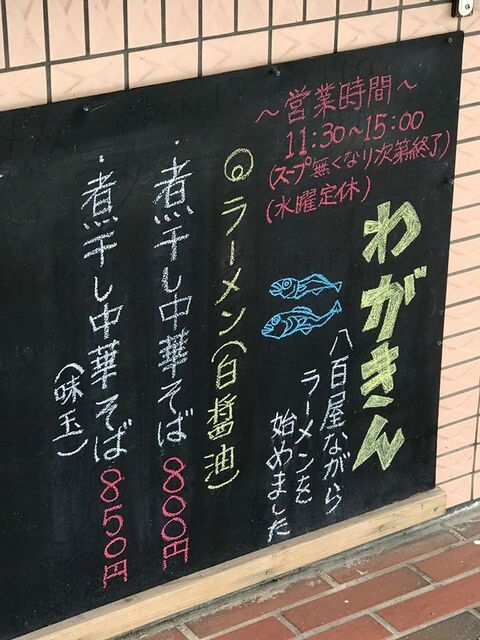 〜営業時間〜
11:30〜15:00
(スープ無くなり次第終了)
(水曜定休)
わがきん
八百屋ながら
ラーメンを
始めました
◎ラーメン(白醤油)
・煮干し中華そば 800円
・煮干し中華そば 850円
(味玉)